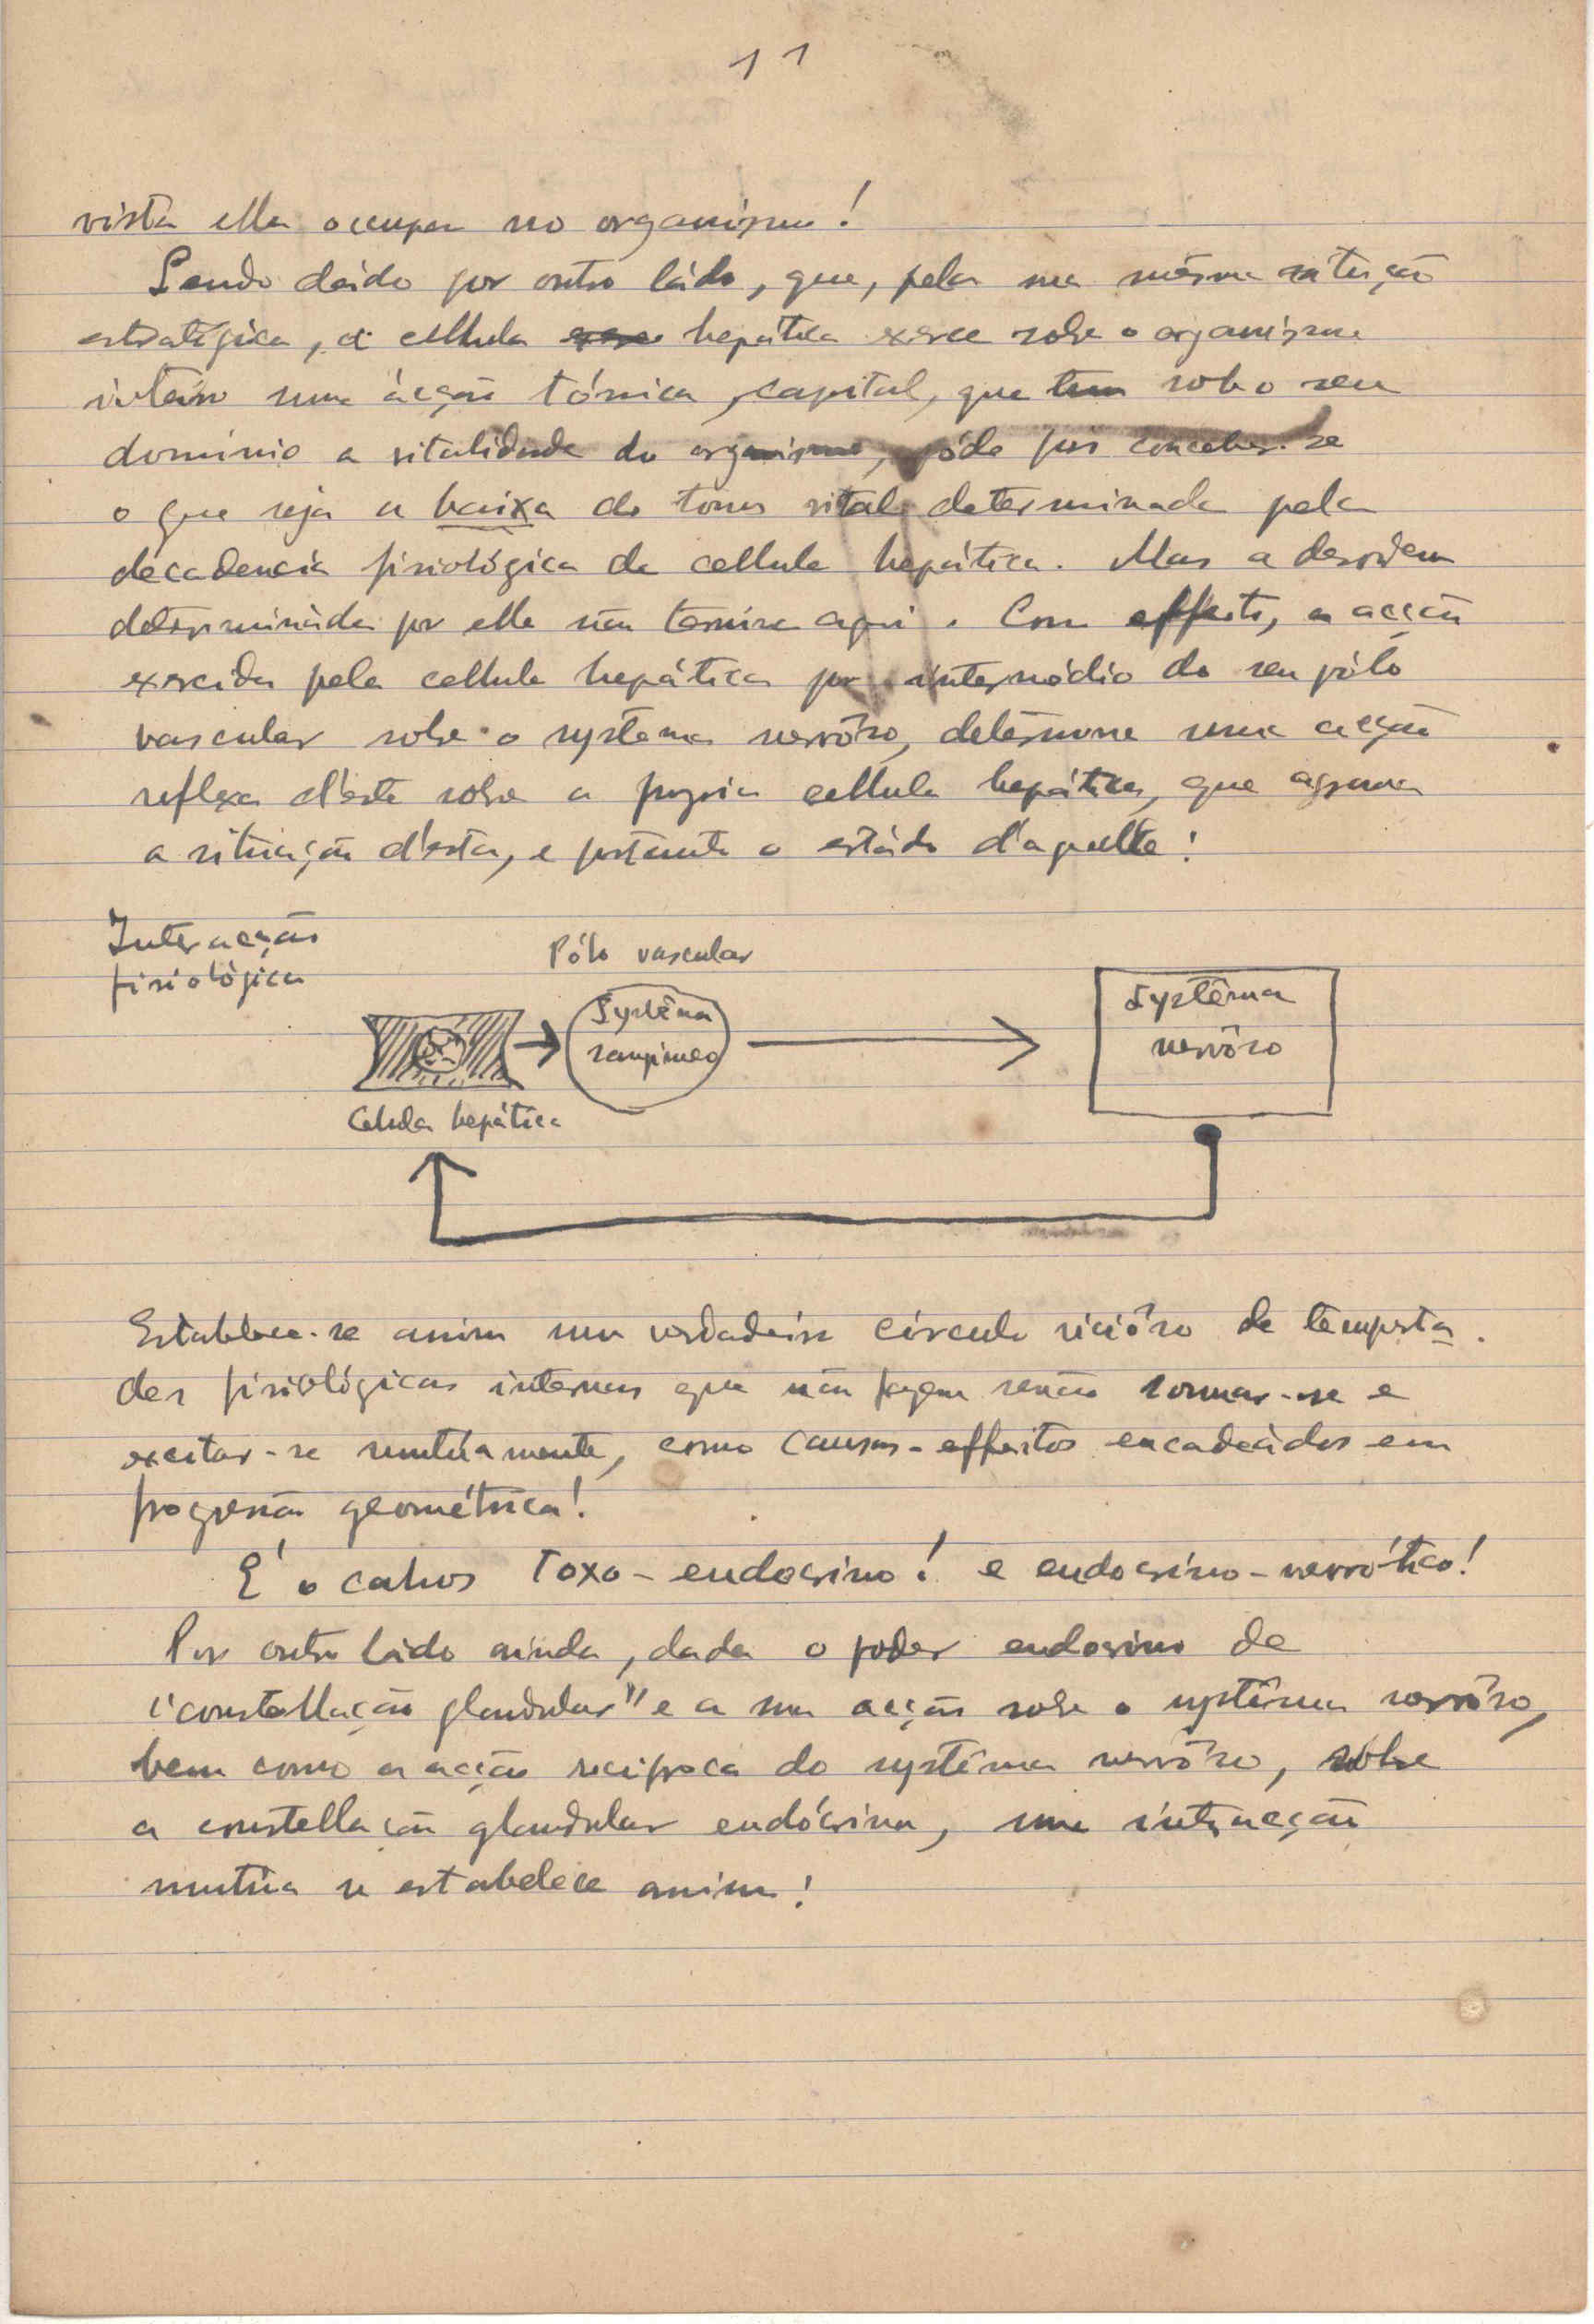 11
vista ella occupa no organismo!
Sendo dádo por outro ládo, que, pela sua mésma situação
estratégica, a cellula hepática exerce sobre o organismo
inteiro uma ácção tónica, capital, que tem sob o seu
dominio a vitalidade do organismo, póde pois conceber-se
o que seja a baixa do tonus vital determinada pela
decadencia fisiológica da cellula hepática. Mas a desordem
determinada por ella não termina aqui. Com effeito, a acção
exercida pela cellula hepática por intermédio do seu pólo
vascular sobre o systema nervôso, determina uma acção
reflexa d'este sobre a propria cellula hepática, que agrava
a situação d'esta, e portanto o estádo d'aquelle!
Interacção
fisiológica
Pólo vascular
Systêma
sanguineo
Systêma
nervôso
Celula hepática
Establece-se assim um verdadeiro círculo viciôso de tempesta-
des fisiológicas internas que não fazem senão somar-se e
excitar-se mutúamente, como causas-effeitos encadeádos em
progressão geométrica!
É o cahos Toxo-endocrino! e endocríno-nevrótico!
Por outro ládo ainda, dada o poder endocrino de
"constellação glandular" e a sua acção sobre o systêma nervôso,
bem como a acção reciproca do systêma nervôso, sobre
a constellação glandular endócrina, uma interacção
mutúa se estabelece assim!